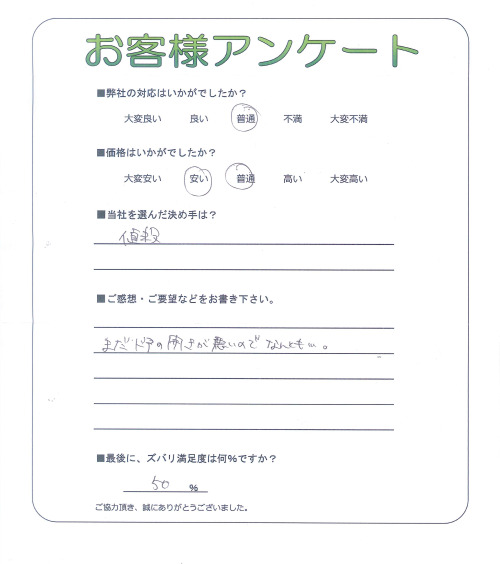 お客様アンケート
■弊社の対応はいかがでしたか？
大変良い 良い 普通 不満 大変不満
■価格はいかがでしたか？
大変安い 安い 普通 高い 大変高い
■当社を選んだ決め手は？
値段
■ご感想・ご要望などをお書き下さい。
まだドアの開きが悪いのでなんとも…。
■最後に、ズバリ満足度は何％ですか？
50 ％
ご協力頂き、誠にありがとうございました。